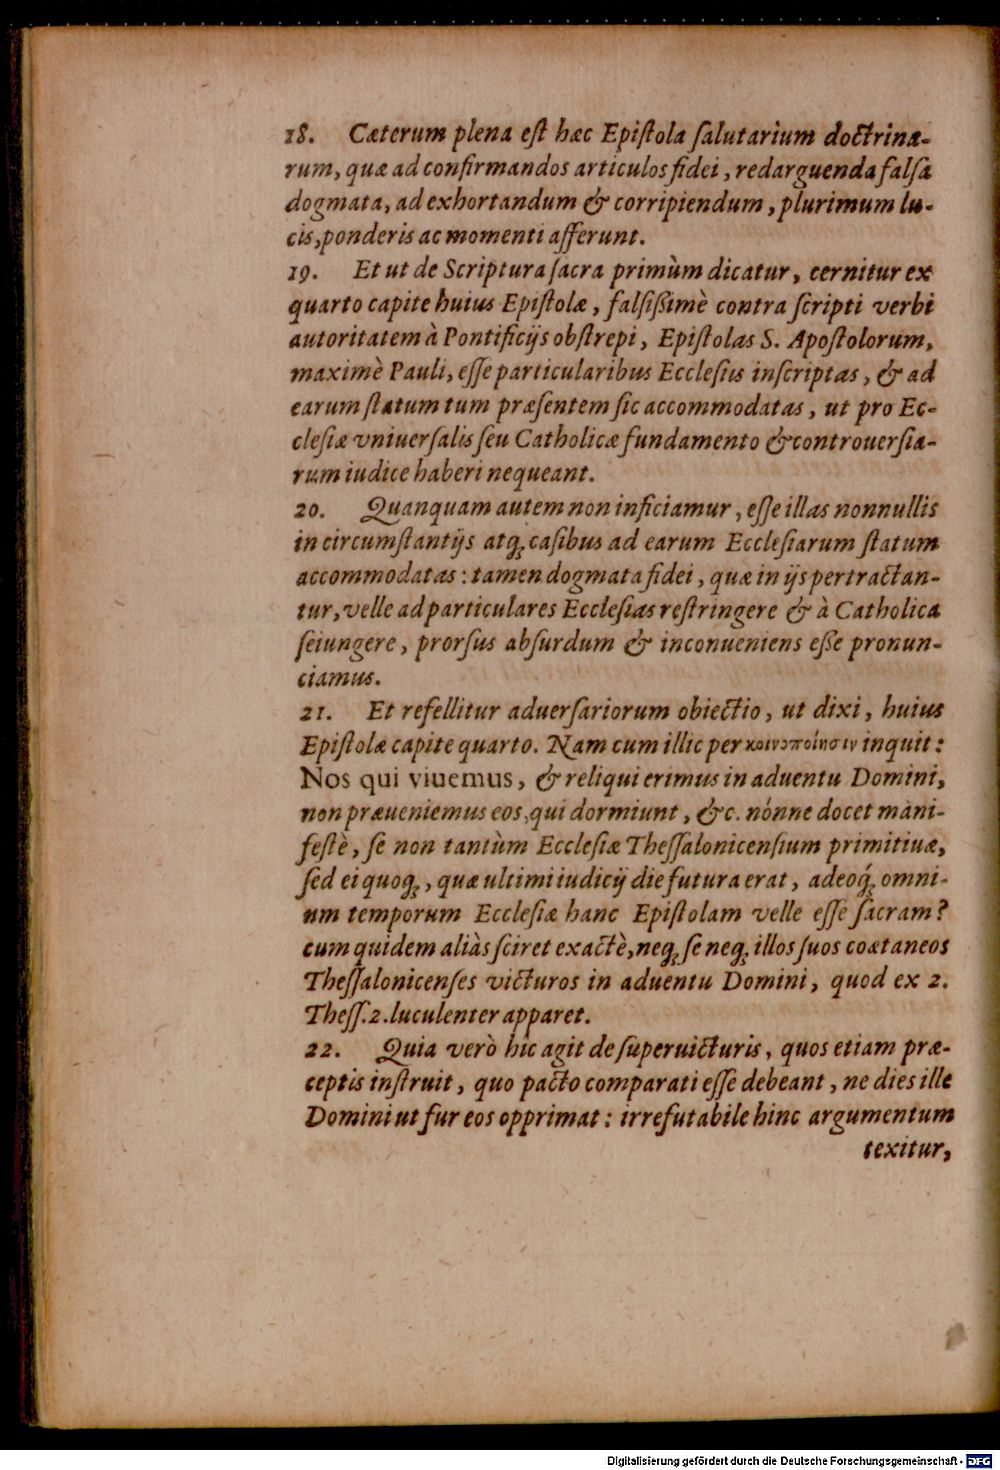 18. Cæterum plena est hæc Epistola salutarium doctrina-
rum, quæ ad confirmandos articulos fidei, redarguenda falsa
dogmata, ad exhortandum & corripiendum, plurimum lu-
cis, ponderis ac momenti afferunt.
19. Et ut de Scriptura sacra primùm dicatur, cernitur ex
quarto capite huius Epistolæ, falsißimè contra scripti verbi
autoritatem à Pontificijs obstrepi, Epistolas S. Apostolorum,
maximè Pauli, esse particularibus Ecclesiis inscriptas, & ad
earum statum tum præsentem sic accommodatas, ut pro Ec-
clesiæ vniuersalis seu Catholicæ fundamento & controuersia-
rum iudice haberi nequeant.
20. Quanquam autem non inficiamur, esse illas nonnullis
in circumstantijs atq; casibus ad earum Ecclesiarum statum
accommodatas: tamen dogmata fidei, quæ in ijs pertractan-
tur, velle ad particulares Ecclesias restringere & à Catholica
seiungere, prorsus absurdum & inconueniens eße pronun-
ciamus.
21. Et refellitur aduersariorum obiectio, ut dixi, huius
Epistolæ capite quarto. Nam cum illic per κοινοποίησιν inquit:
Nos qui viuemus, & reliqui erimus in aduentu Domini,
non præueniemus eos, qui dormiunt, &c. nónne docet mani-
festè, se non tantùm Ecclesiæ Thessalonicensium primitiuæ,
sed ei quoq;, quæ ultimi iudicij die futura erat, adeoq́; omni-
um temporum Ecclesiæ hanc Epistolam velle esse sacram?
cum quidem aliàs sciret exactè, neq; se neq; illos suos coætaneos
Thessalonicenses victuros in aduentu Domini, quod ex 2.
Thess. 2. luculenter apparet.
22. Quia verò hîc agit de superuicturis, quos etiam præ-
ceptis instruit, quo pacto comparati esse debeant, ne dies ille
Domini ut fur eos opprimat: irrefutabile hinc argumentum
texitur,
Digitalisierung gefördert durch die Deutsche Forschungsgemeinschaft - DFG